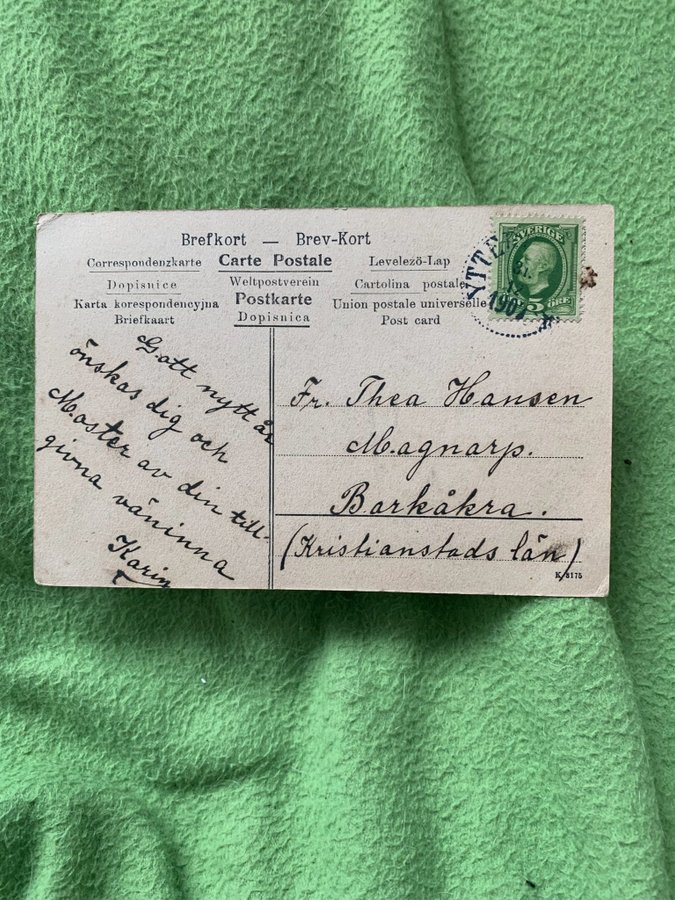 Brefkort — Brev-Kort
Correspondenzkarte Carte Postale Levelezö-Lap
Dopisnice Weltpostverein Cartolina postale
Karta korespondencyjna Postkarte Union postale universelle
Briefkaart Dopisnica Post card
SVERIGE
5 ÖRE
YTTE
31
1907
Gott nytt år
önskas dig och
Moster av din till-
givna väninna
Karin
Fr. Thea Hansen
Magnarp.
Barkåkra.
(Kristianstads län)
K. 8175